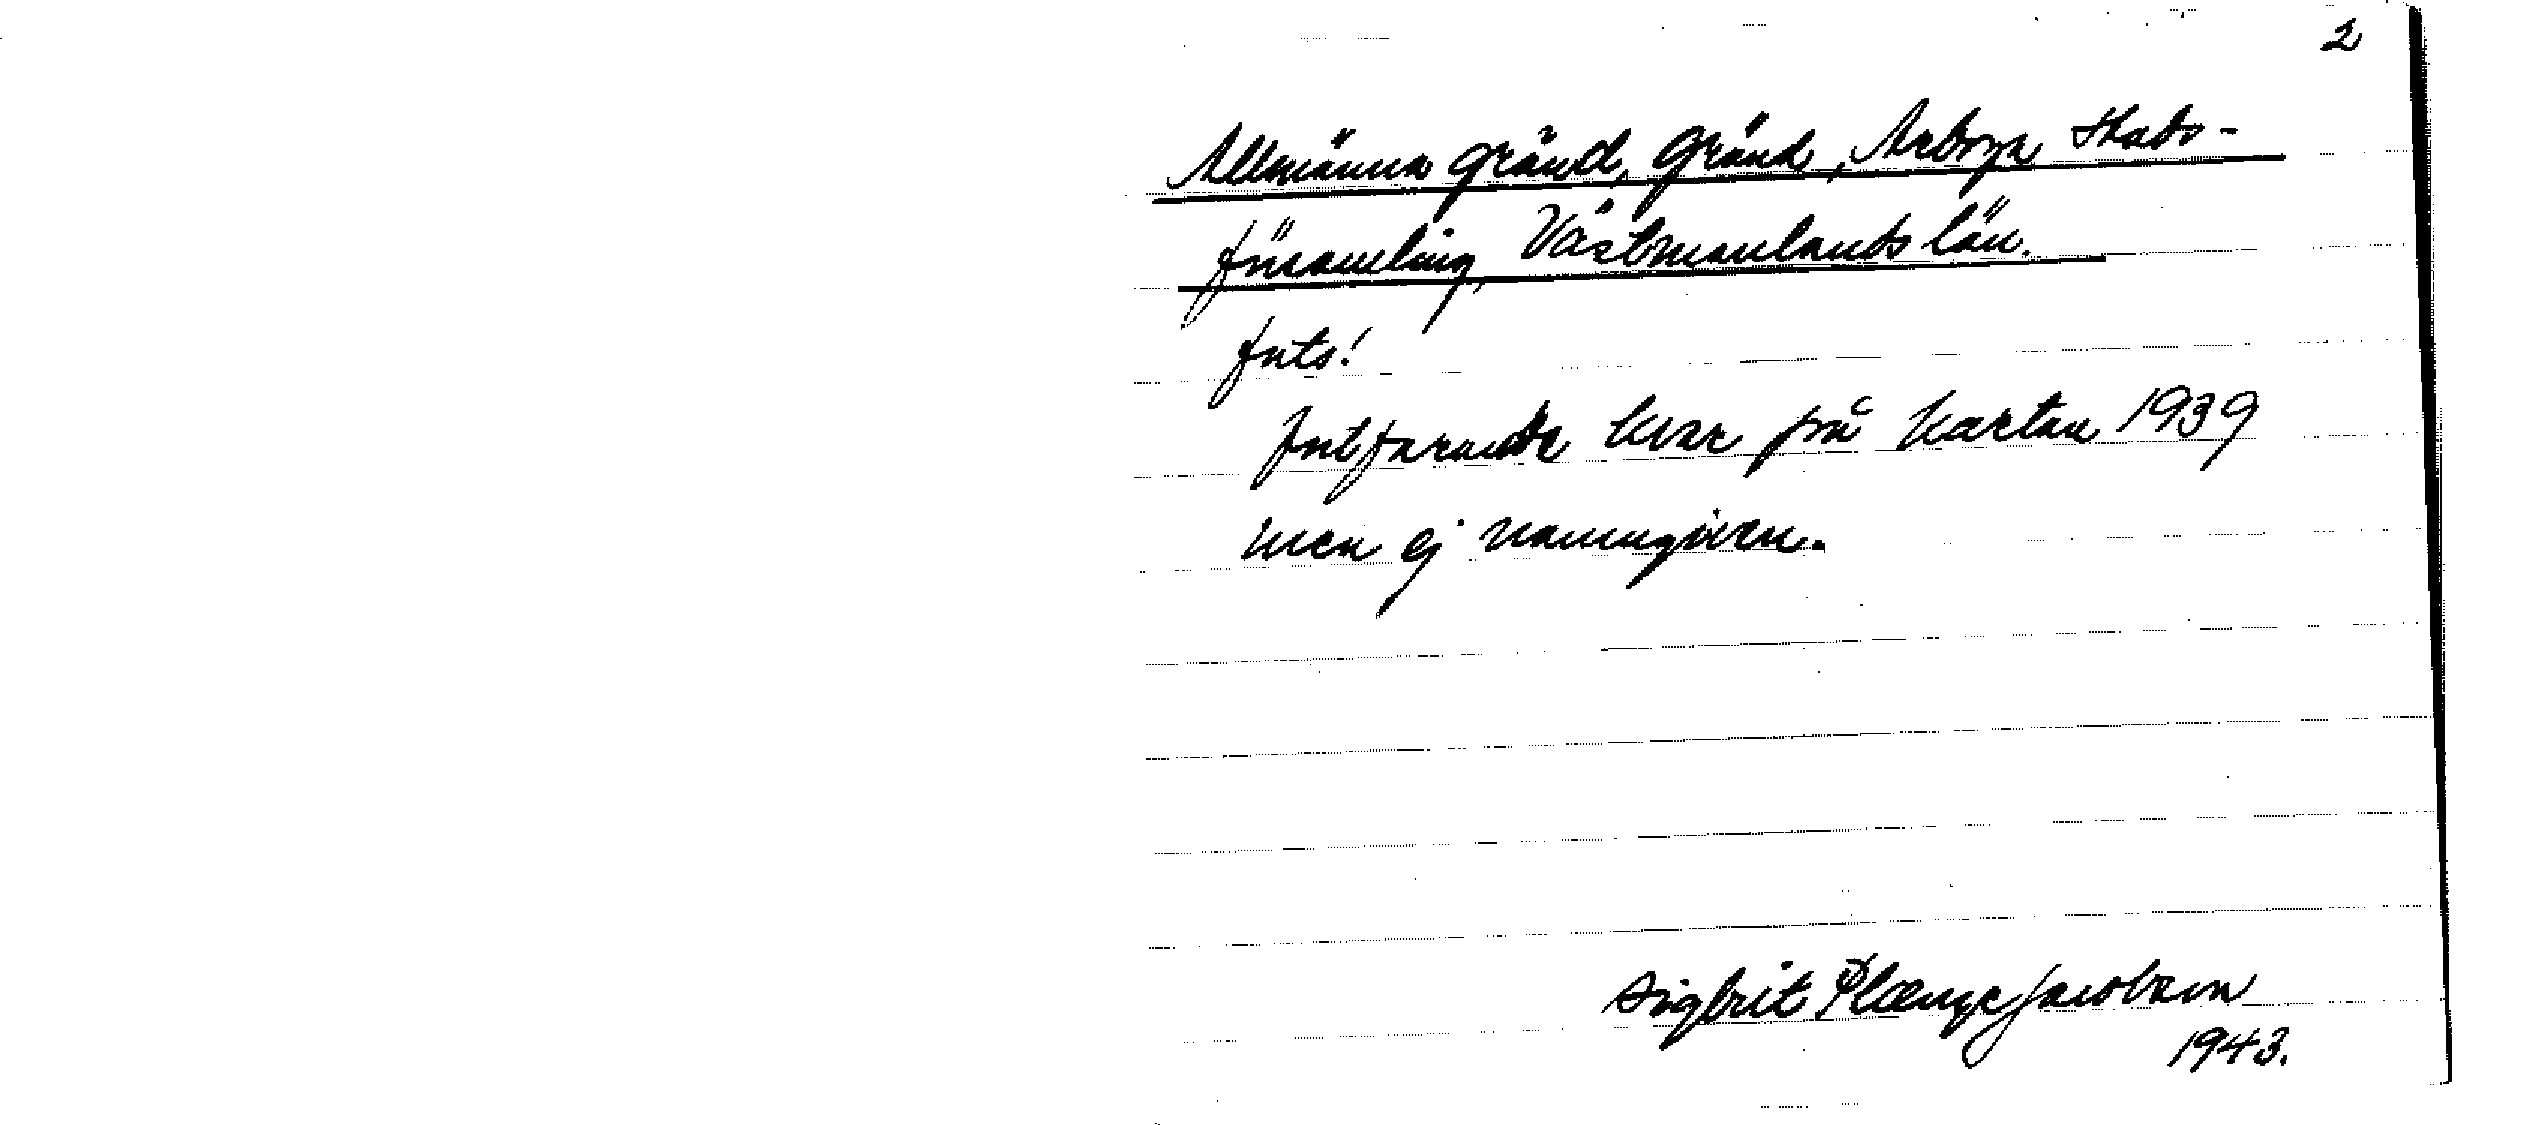 2
Allmänna gränd, Gränd, Arboga stads-
församling, Västmanlands län.
forts!
fortfarande kvar på kartan 1939
men ej namngiven.
Sigbrit Plænge Jacobson
1943.